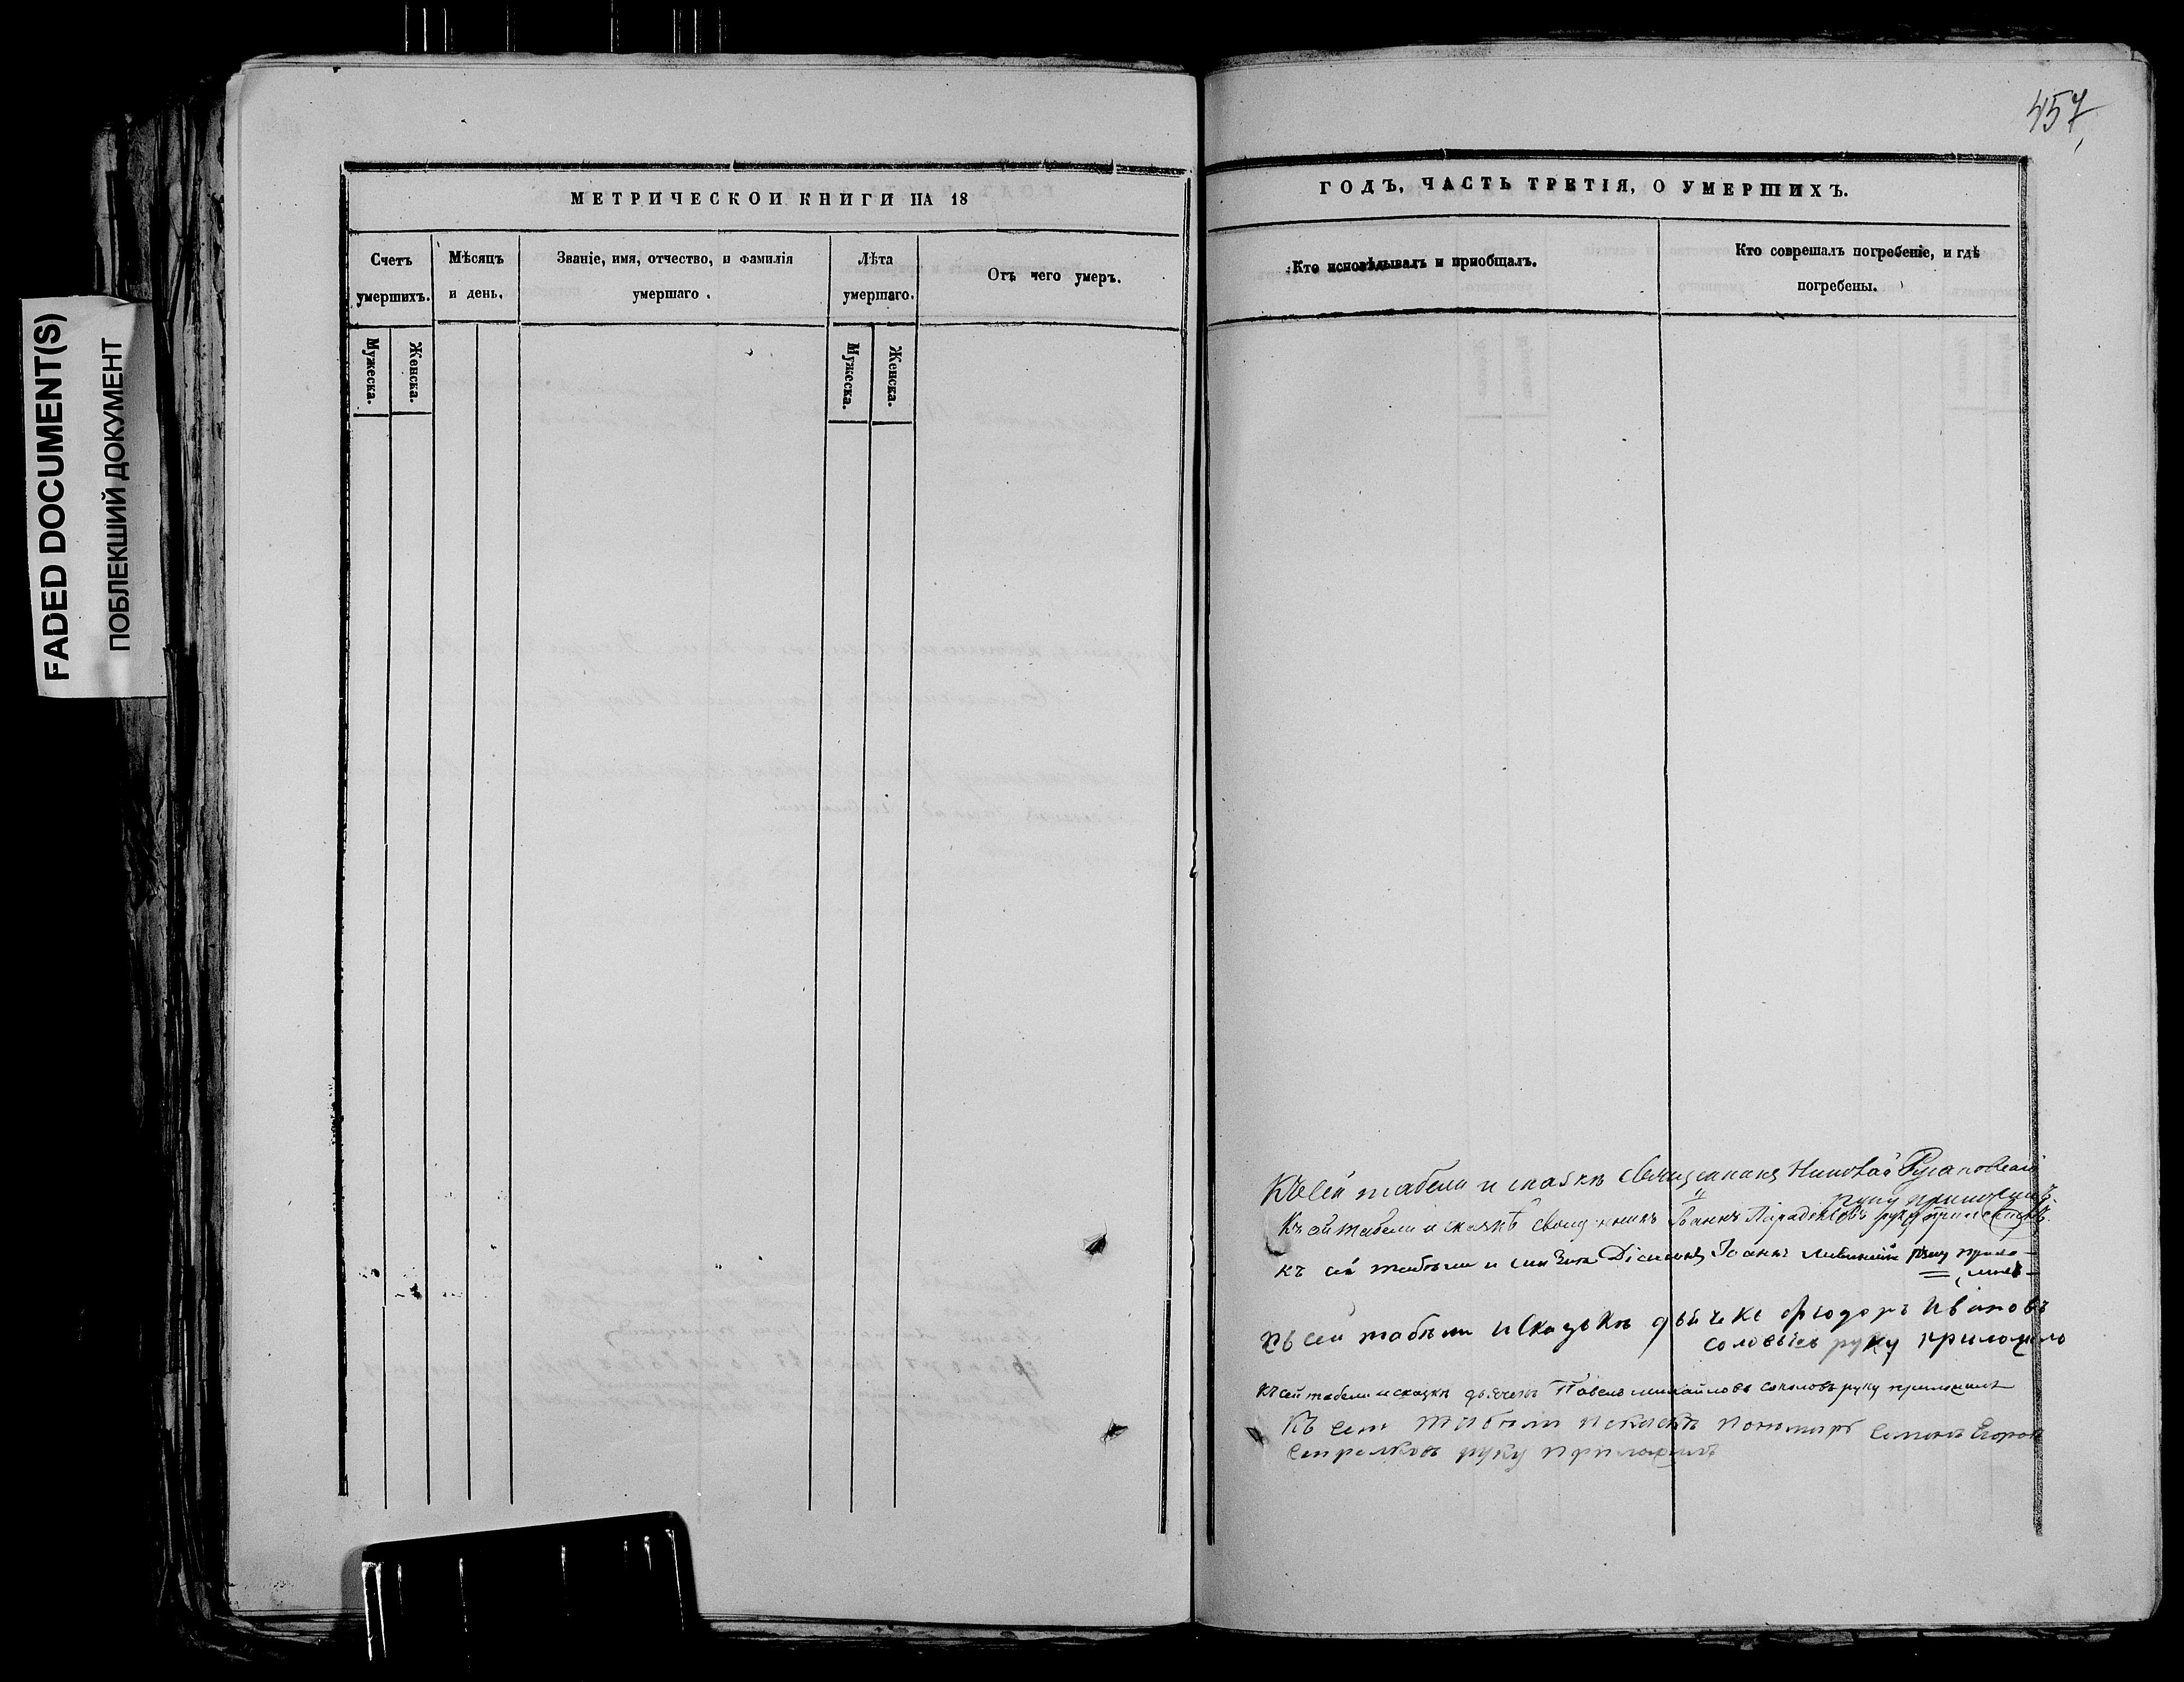 FADED DOCUMENT(S)
ПОБЛЕКШИЙ ДОКУМЕНТ
МЕТРИЧЕСКОЙ КНИГИ НА 18
Счетъ умершихъ.
Мѣсяцъ и день.
Званіе, имя, отчество, и фамилія умершаго.
Лѣта умершаго.
Отъ чего умеръ.
Мужеска.
Женска.
Мужеска.
Женска.
457
ГОДЪ, ЧАСТЬ ТРЕТІЯ, О УМЕРШИХЪ.
Кто исповѣдывалъ и пріобщалъ.
Кто соврешалъ погребеніе, и гдѣ погребены.
Къ сей табели и сказкѣ Священникъ Николай
руку приложилъ.
Къ сей табели и сказкѣ Іоаннъ Парадоксовъ руку приложилъ.
къ сей табели и Діаконъ Іоаннъ руку прило-
жилъ
къ сей табели и сказкѣ дьячекъ Фіодоръ Ивановъ
соловьевъ руку приложилъ
къ сей табели и сказкѣ дьячекъ Павелъ михайловъ соколовъ руку приложилъ
Къ сей табели и сказкѣ пономарь Семенъ Егоровъ
Стрелковъ руку приложилъ